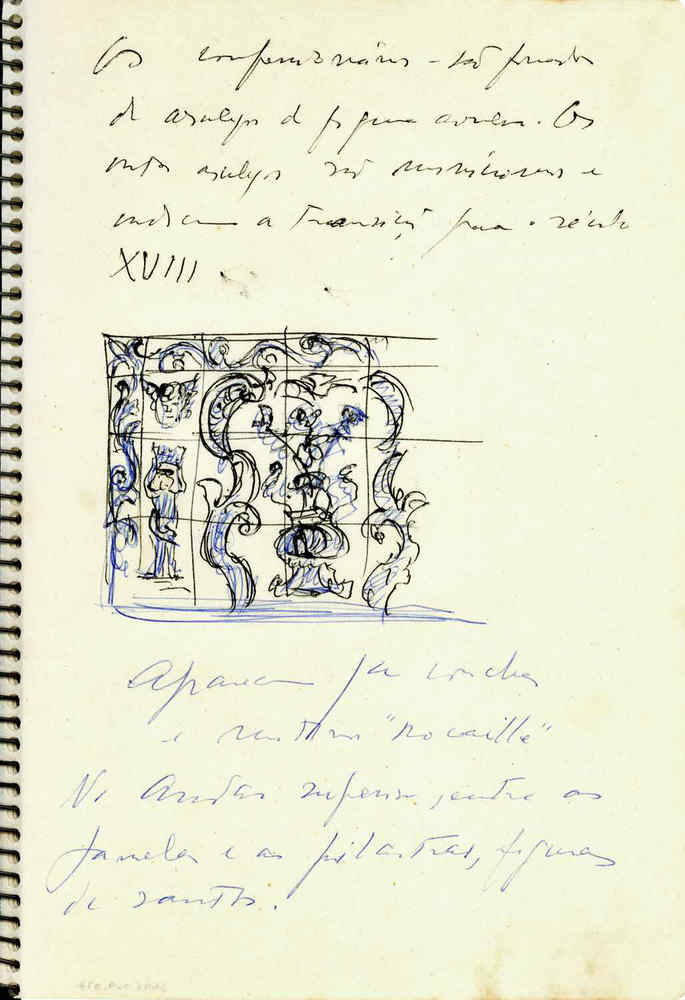 Os confessionários - são forrados
de azulejos de figura avulsa. Os
outros azulejos são e
indicam a transição para o século
XVIII
Aparecem já conchas
e motivos "Rocaille"
No Andar superior, entre as
janelas e as pilastras, figuras
de santos.